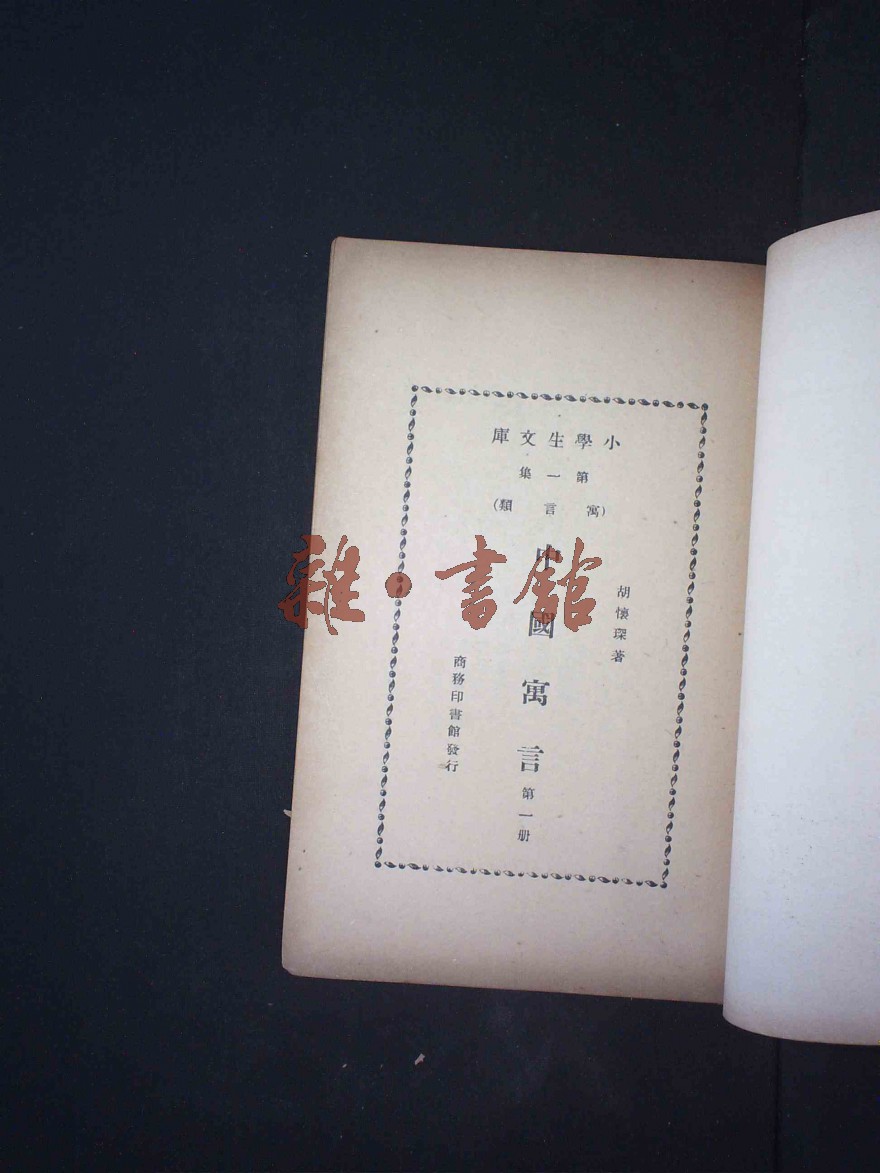 小學生文庫
第一集
(寓言類)
胡懷琛著
中國寓言 第一册
商務印書館發行
雜·書館